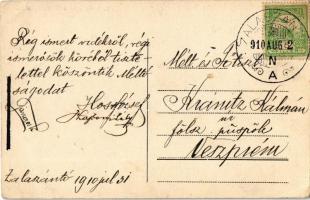 Rég ismert vidékről, régi
ismerősök köréből tiszte-
lettel köszöntik Mélt-
ságodat
József
Zalaszántó 1910 jul 31
ZALASZÁNTÓ
910 AUG 2
N
A
Mélt és
Kránitz Kálmán
úr
fölsz. püspök
Veszprém